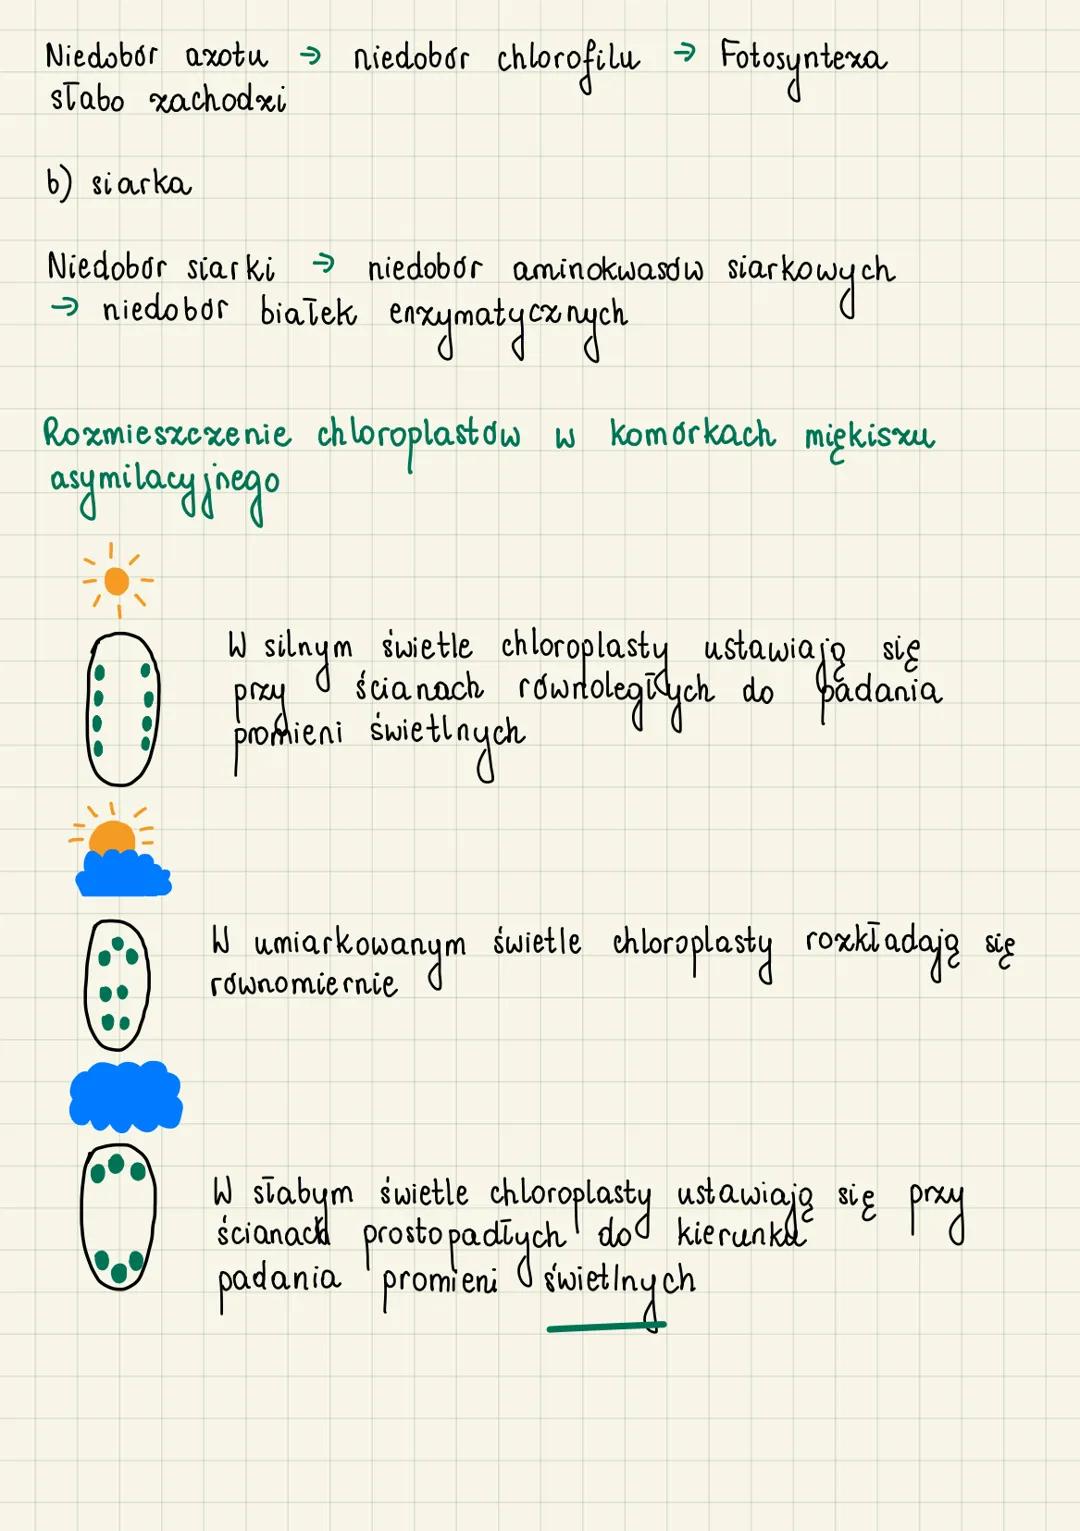 Niedobór azotu → niedobór chlorofilu → Fotosynteza
słabo zachodzi
b) siarka
Niedobór siarki → niedobór aminokwasów siarkowych
→ niedobór białek enzymatycznych
Rozmieszczenie chloroplastów w komórkach miękiszu
asymilacyjnego
W silnym świetle chloroplasty ustawiają się
przy ścianach równoległych do padania
promieni świetlnych
W umiarkowanym świetle chloroplasty rozkładają się
równomiernie
W słabym świetle chloroplasty ustawiają się przy
ścianach prostopadłych do kierunku
padania promieni świetlnych